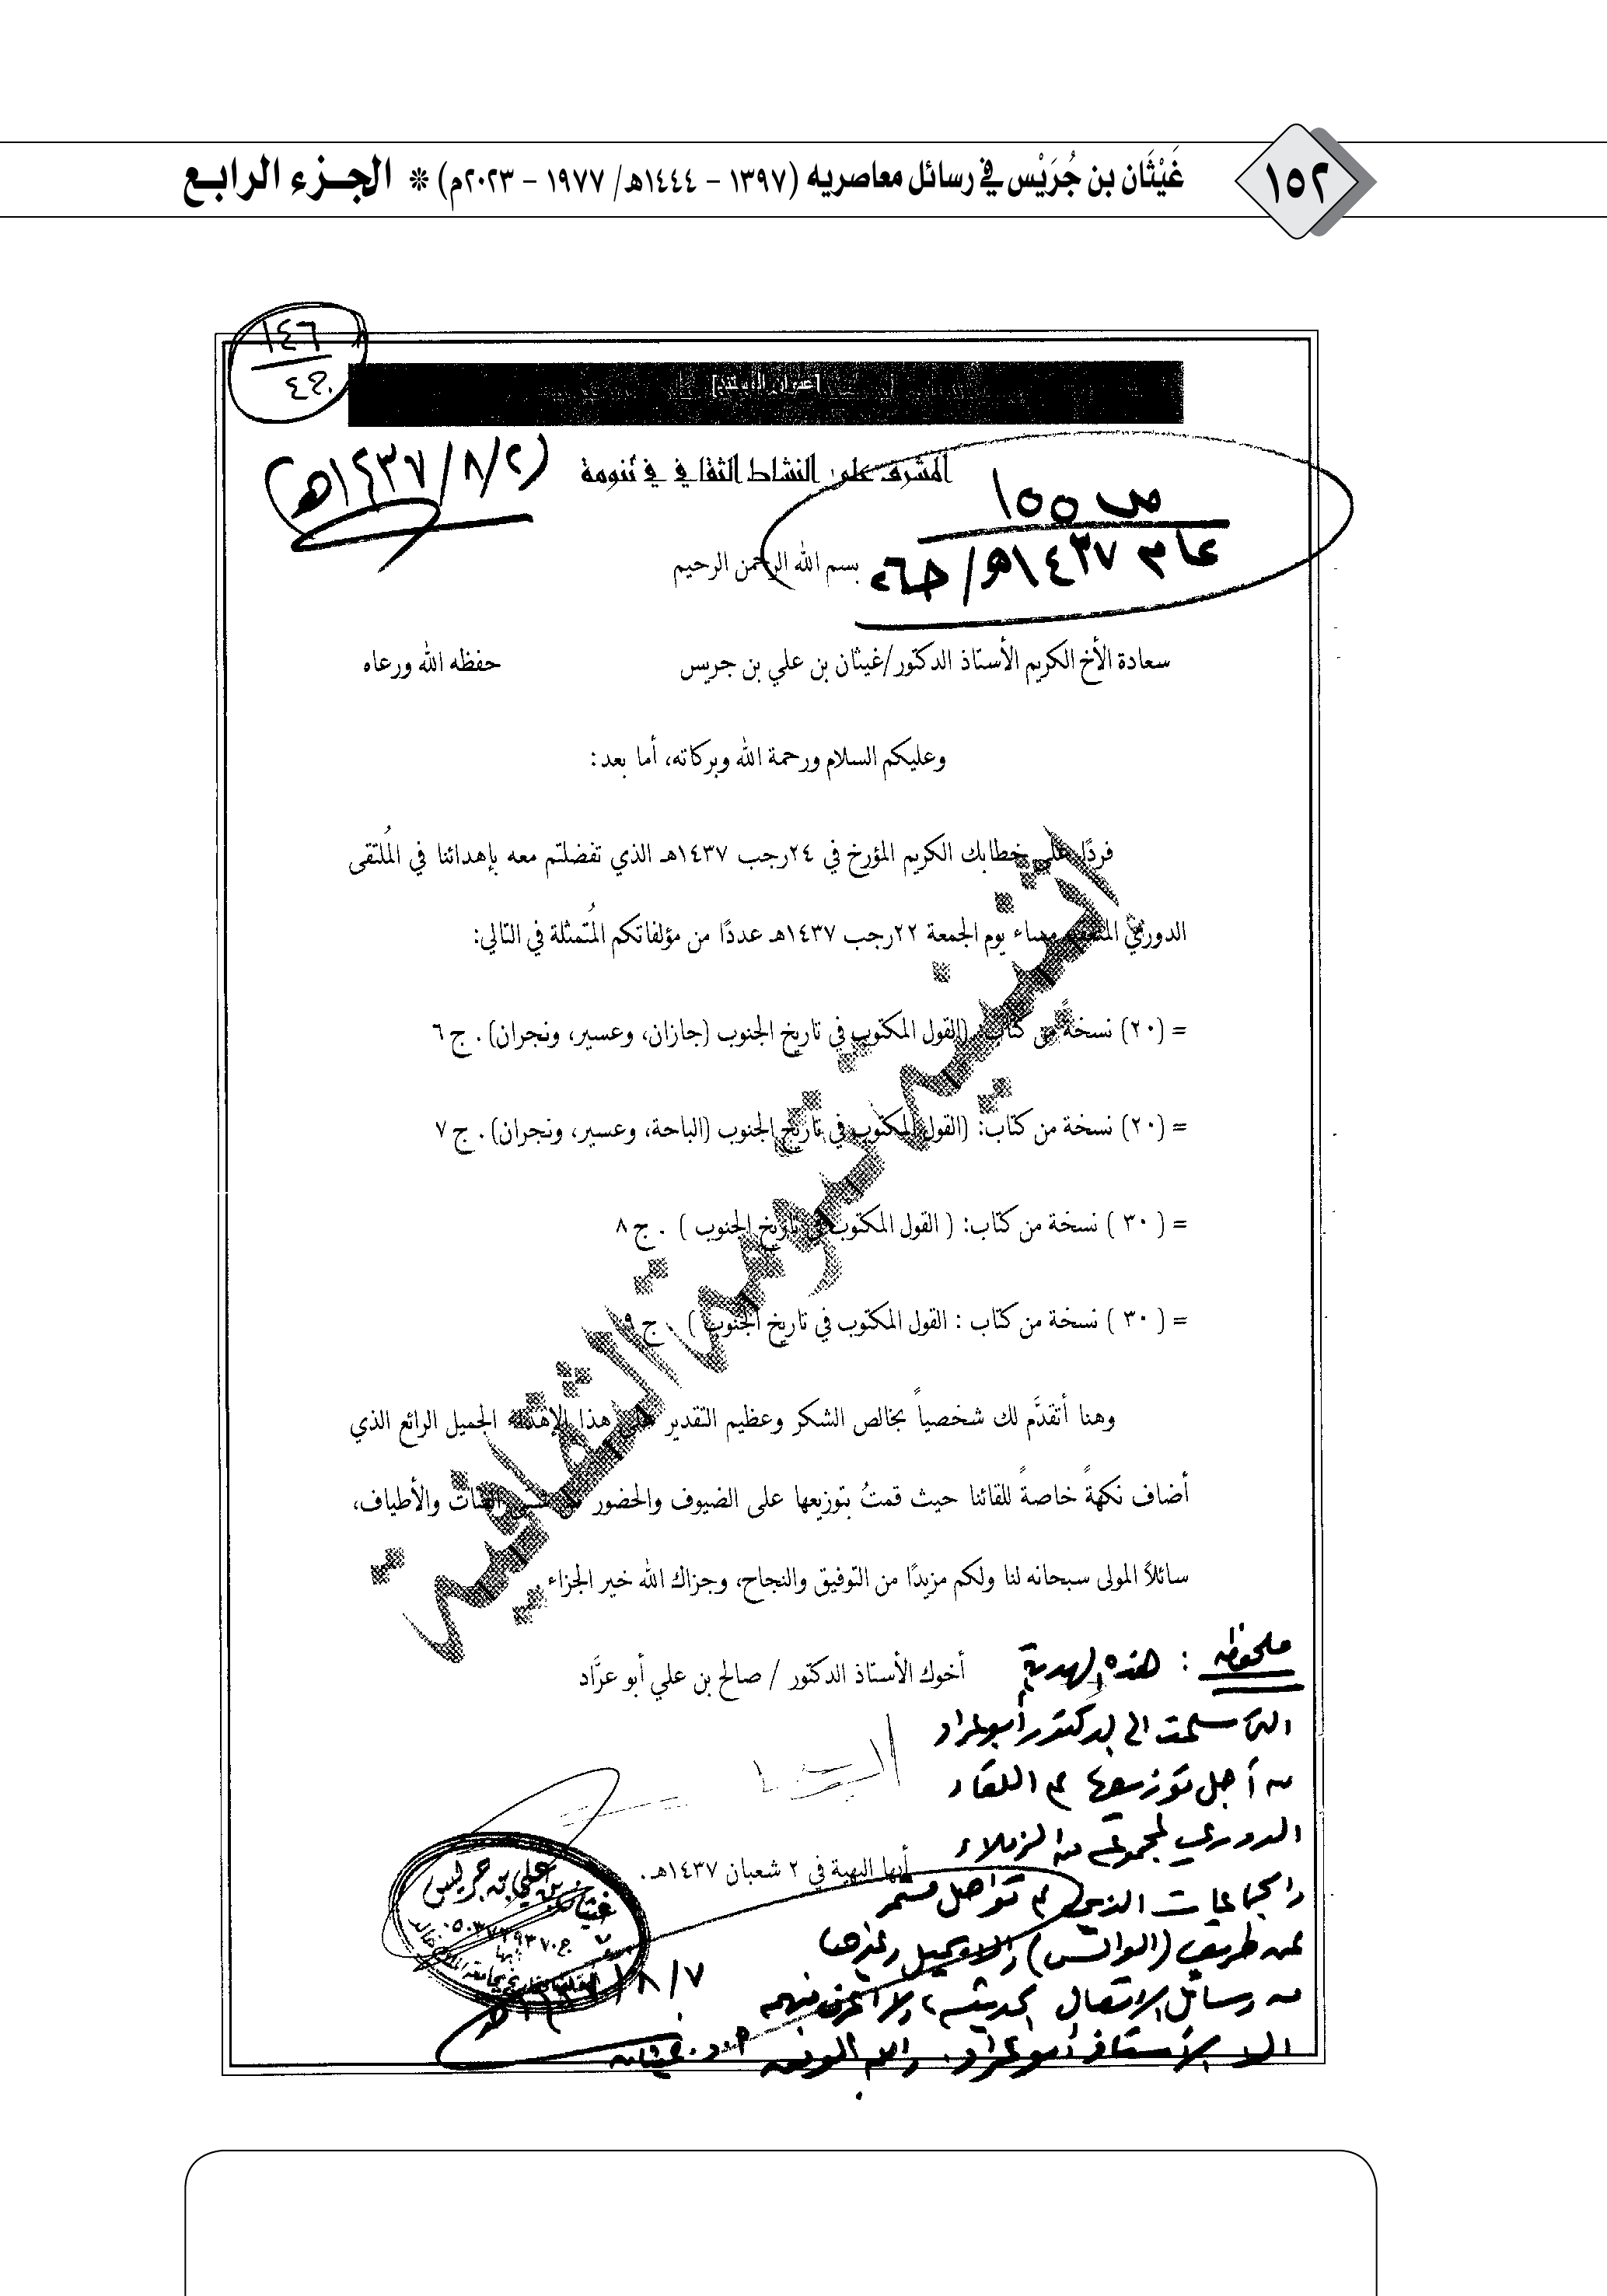 ١٥٢
غَيْثَان بن جُرَيْس في رسائل معاصريه (١٣٩٧ – ١٤٤٤هـ/ ١٩٧٧ – ٢٠٢٣م) ❊ الجـزء الرابـع
١٤٦
[عنوان المستند]
المشرف على النشاط الثقافي في تنومة
(٢/٨/١٤٣٧هـ)
ص ١٥٥
عام ١٤٣٧هـ/
بسم الله الرحمن الرحيم
سعادة الأخ الكريم الأستاذ الدكتور/غيثان بن علي بن جريس حفظه الله ورعاه
وعليكم السلام ورحمة الله وبركاته، أما بعد:
فردًا على خطابك الكريم المؤرخ في ٢٤رجب ١٤٣٧هـ الذي تفضلتم معه بإهدائنا في المُلتقى
الدوري المنعقد مساء يوم الجمعة ٢٢رجب ١٤٣٧هـ عددًا من مؤلفاتكم المُتمثلة في التالي:
= (٢٠) نسخةً من كتاب: (القول المكتوب في تاريخ الجنوب (جازان، وعسير، ونجران) . ج ٦
= (٢٠) نسخة من كتاب: (القول المكتوب في تاريخ الجنوب (الباحة، وعسير، ونجران) . ج ٧
= ( ٣٠ ) نسخة من كتاب: ( القول المكتوب في تاريخ الجنوب ) . ج ٨
= ( ٣٠ ) نسخة من كتاب : القول المكتوب في تاريخ الجنوب ) . ج ٩
وهنا أتقدَّم لك شخصياً بخالص الشكر وعظيم التقدير على هذا الإهداء الجميل الرائع الذي
أضاف نكهةً خاصةً للقائنا حيث قمتُ بتوزيعها على الضيوف والحضور من شتى الفئات والأطياف،
سائلاً المولى سبحانه لنا ولكم مزيدًا من التوفيق والنجاح، وجزاك الله خير الجزاء .
أخوك الأستاذ الدكتور / صالح بن علي أبو عرَّاد
أبها البهية في ٢ شعبان ١٤٣٧هـ .
النسيم تنومة الثقافية
ملحوظة : هذه الهدية
التي سلمت الى الدكتور أبو عراد
من أجل توزيعها في اللقاء
الدوري لمجموعة من الزملاء
والجماعات الذين في تواصل مستمر
عن طريق (الواتس) والايميل وغيرها
من وسائل الاتصال الحديثة، ولا أعرف منهم
الا الأستاذ أبو عراد. والله الموفق
أ.د. غيثان
٧/٨/١٤٣٧هـ
غيثان بن علي بن جريس
أبها